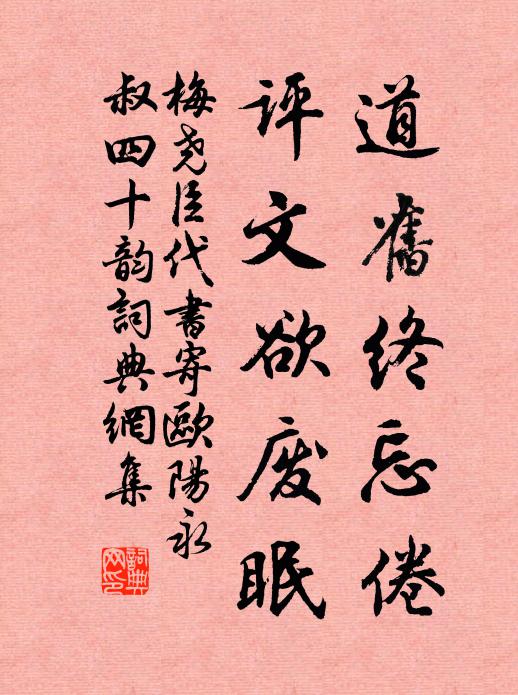 道舊終忘倦
評文欲废眠
梅尧臣代書寄歐陽永
叔四十韵詞典網集
詞典網印